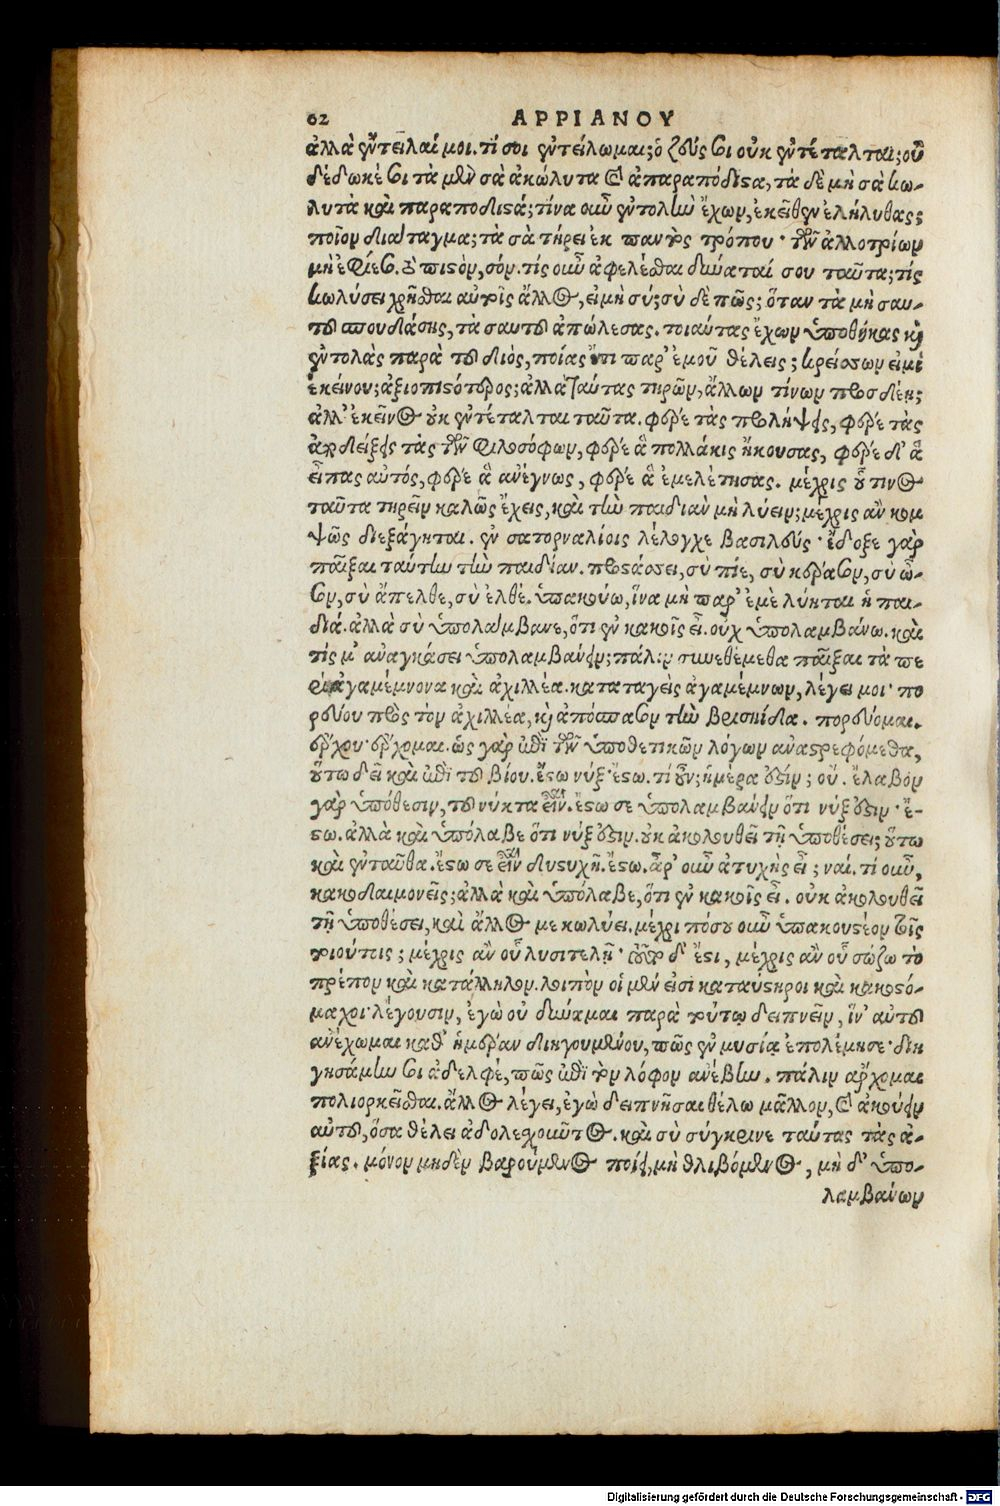 62 ΑΡΡΙΑΝΟΥ
ἀλλὰ ἔντειλαί μοι. τί σοι ἐντείλωμαι; ὁ ζεύς σοι οὐκ ἐντέταλται; οὐ
δέδωκέ σοι τὰ μὲν σὰ ἀκώλυτα καὶ ἀπαραπόδιστα, τὰ δὲ μὴ σὰ κω-
λυτὰ καὶ παραποδιστά; τίνα οὖν ἐντολὴν ἔχων, ἐκεῖθεν ἐλήλυθας;
ποῖον διάταγμα; τὰ σὰ τήρει ἐκ παντὸς τρόπου· τῶν ἀλλοτρίων
μὴ ἐφίεσο. τὸ πιστὸν, σόν. τίς οὖν ἀφελέσθαι δύναταί σου ταῦτα; τίς
κωλύσει χρῆσθαι αὐτοῖς ἄλλος, εἰ μὴ σύ; σὺ δὲ πῶς; ὅταν τὰ μὴ σαυ-
τοῦ σπουδάσῃς, τὰ σαυτοῦ ἀπώλεσας. τοιαύτας ἔχων ὑποθήκας καὶ
ἐντολὰς παρὰ τοῦ διὸς, ποίας ἔτι παρ' ἐμοῦ θέλεις; κρείσσων εἰμὶ
ἐκείνου; ἀξιοπιστότερος; ἀλλὰ ταύτας τηρῶν, ἄλλων τίνων προσδέῃ;
ἀλλ' ἐκεῖνος οὐκ ἐντέταλται ταῦτα. φέρε τὰς προλήψεις, φέρε τὰς
ἀποδείξεις τὰς τῶν φιλοσόφων, φέρε ἃ πολλάκις ἤκουσας, φέρε δ' ἃ
εἶπας αὐτός, φέρε ἃ ἀνέγνως, φέρε ἃ ἐμελέτησας. μέχρις οὗ τινος
ταῦτα τηρεῖν καλῶς ἔχεις, καὶ τὴν παιδιὰν μὴ λύειν; μέχρις ἂν κομ
ψῶς διεξάγηται. ἐν σατορναλίοις λέλογχε βασιλεύς· ἔδοξε γὰρ
παῖξαι ταύτην τὴν παιδίαν. προστάσσει, σὺ πίε, σὺ κέρασον, σὺ ᾆ-
σον, σὺ ἄπελθε, σὺ ἐλθέ. ὑπακούω, ἵνα μὴ παρ' ἐμὲ λύηται ἡ παι-
διά. ἀλλὰ σὺ ὑπολάμβανε, ὅτι ἐν κακοῖς εἶ. οὐχ ὑπολαμβάνω. καὶ
τίς μ' ἀναγκάσει ὑπολαμβάνειν; πάλιν συνεθέμεθα παῖξαι τὰ πε
ρὶ ἀγαμέμνονα καὶ ἀχιλλέα. καταταγεὶς ἀγαμέμνων, λέγει μοι· πο
ρεύου πρὸς τὸν ἀχιλλέα, καὶ ἀπόσπασον τὴν βρισηίδα. πορεύομαι.
ἔρχου· ἔρχομαι. ὡς γὰρ ἐπὶ τῶν ὑποθετικῶν λόγων ἀναστρεφόμεθα,
οὕτω δεῖ καὶ ἐπὶ τοῦ βίου. ἔστω νύξ· ἔστω. τί οὖν; ἡμέρα ἐστίν; οὔ. ἔλαβον
γὰρ ὑπόθεσιν, τοῦ νύκτα εἶναι. ἔστω σε ὑπολαμβάνειν ὅτι νύξ ἐστιν· ἔ-
στω. ἀλλὰ καὶ ὑπόλαβε ὅτι νύξ ἐστιν. οὐκ ἀκολουθεῖ τῇ ὑποθέσει; οὕτω
καὶ ἐνταῦθα. ἔστω σε εἶναι δυστυχῆ. ἔστω. ἆρ' οὖν ἀτυχὴς εἶ; ναί. τί οὖν,
κακοδαιμονεῖς; ἀλλὰ καὶ ὑπόλαβε, ὅτι ἐν κακοῖς εἶ. οὐκ ἀκολουθεῖ
τῇ ὑποθέσει, καὶ ἄλλος με κωλύει. μέχρι πόσου οὖν ὑπακουστέον τοῖς
τοιούτοις; μέχρις ἂν οὗ λυσιτελῇ· τοῦτο δ' ἔστι, μέχρις ἂν οὗ σώζω τὸ
πρέπον καὶ κατάλληλον. λοιπὸν οἱ μὲν εἰσὶ κατάυστηροι καὶ κακοστό-
μαχοι· λέγουσιν, ἐγὼ οὐ δύναμαι παρὰ τούτῳ δειπνεῖν, ἵν' αὐτοῦ
ἀνέχωμαι καθ' ἡμέραν διηγουμένου, πῶς ἐν μυσίᾳ ἐπολέμησε· διη
γησάμην σοι ἀδελφέ, πῶς ἐπὶ τὸν λόφον ἀνέβην. πάλιν ἄρχομαι
πολιορκεῖσθαι. ἄλλος λέγει, ἐγὼ δειπνῆσαι θέλω μᾶλλον, καὶ ἀκούειν
αὐτοῦ, ὅσα θέλει ἀδολεσχοῦντος. καὶ σὺ σύγκρινε ταύτας τὰς ἀ-
ξίας. μόνον μηδὲν βαρούμενος ποίει, μὴ θλιβόμενος, μὴ δ' ὑπο-
λαμβάνων
Digitalisierung gefördert durch die Deutsche Forschungsgemeinschaft - DFG